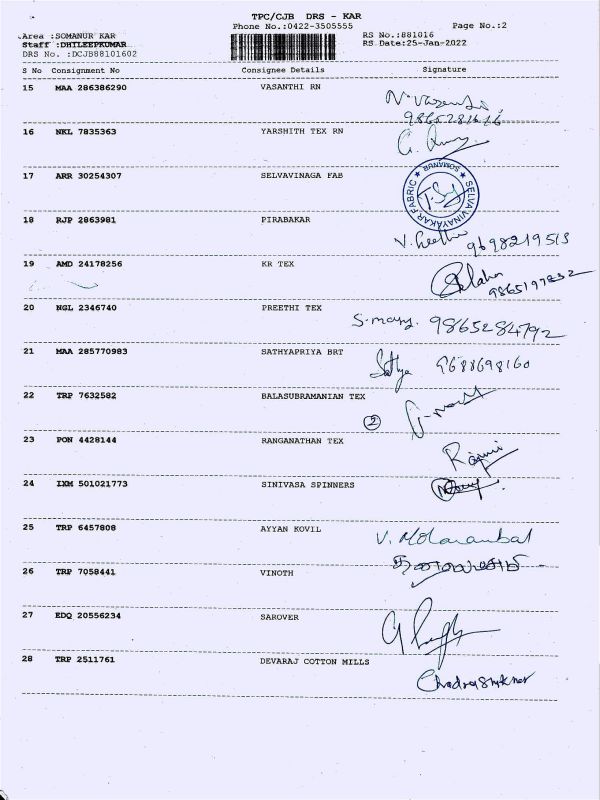 TPC/CJB DRS - KAR
Phone No.:0422-3505555
Page No.:2
Area :SOMANUR KAR
RS No.:881016
Staff :DHILEEPKUMAR
RS Date:25-Jan-2022
DRS No. :DCJB88101602
S No Consignment No Consignee Details Signature
15 MAA 286386290 VASANTHI RN
16 NKL 7835363 YARSHITH TEX RN
17 ARR 30254307 SELVAVINAGA FAB
SELVA VINAYAKAR FABRIC
SOMANUR
18 RJP 2863981 PIRABAKAR
9698219513
19 AMD 24178256 KR TEX
20 NGL 2346740 PREETHI TEX
S-mary. 9865284792
21 MAA 285770983 SATHYAPRIYA BRT
Sathya 9688698160
22 TRP 7632582 BALASUBRAMANIAN TEX
2
23 PON 4428144 RANGANATHAN TEX
24 IXM 501021773 SINIVASA SPINNERS
25 TRP 6457808 AYYAN KOVIL
26 TRP 7058441 VINOTH
27 EDQ 20556234 SAROVER
28 TRP 2511761 DEVARAJ COTTON MILLS